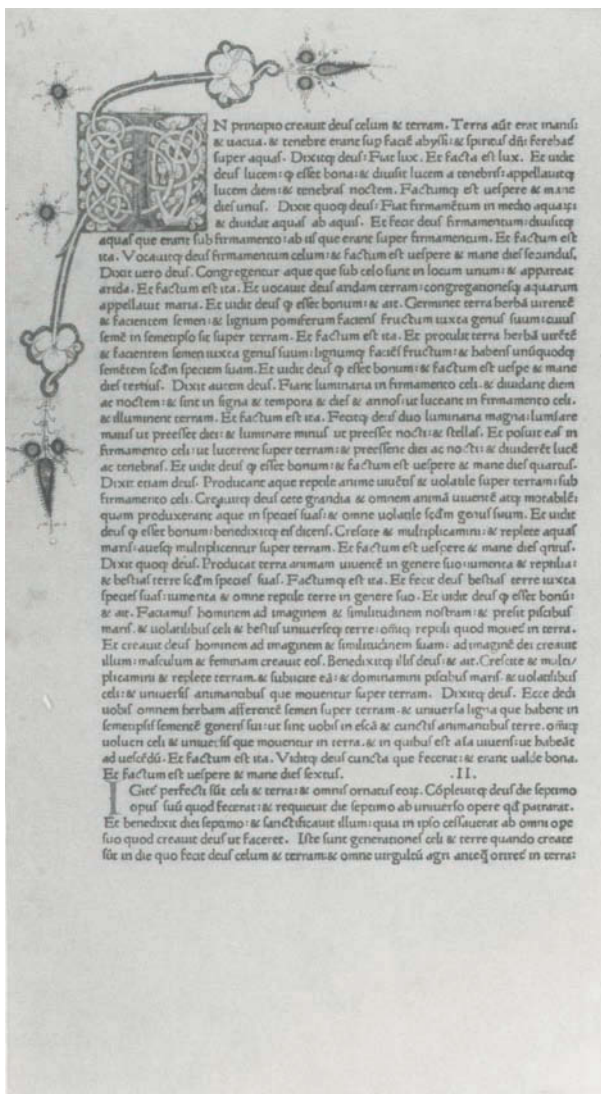 N principio creauit deus celum & terram. Terra aūt erat inanis:
& uacua. & tenebre erant sup faciē abyssi: & spiritus dñi ferebat̄
super aquas. Dixitq; deus: Fiat lux. Et facta est lux. Et uidit
deus lucem: ꝙ esset bona: & diuisit lucem a tenebris: appellauitq;
lucem diem: & tenebras noctem. Factumq; est uespere & mane
dies unus. Dixit quoq; deus: Fiat firmamētum in medio aquaꝝ:
& diuidat aquas ab aquis. Et fecit deus firmamentum: diuisitq;
aquas que erant sub firmamento: ab iis que erant super firmamentum. Et factum est
ita. Vocauitq; deus firmamentum celum: & factum est uespere & mane dies secundus.
Dixit uero deus. Congregentur aque que sub celo sunt in locum unum: & appareat
arida. Et factum est ita. Et uocauit deus aridam terram: congregationesq; aquarum
appellauit maria. Et uidit deus ꝙ esset bonum: & ait. Germinet terra herbā uirentē
& facientem semen: & lignum pomiferum faciens fructum iuxta genus suum: cuius
semē in semetipso sit super terram. Et factum est ita. Et protulit terra herbā uirētē
& facientem semen iuxta genus suum: lignumq; faciēs fructum: & habens unūquodq;
semētem scd̄m speciem suam. Et uidit deus ꝙ esset bonum: & factum est uespe & mane
dies tertius. Dixit autem deus. Fiant luminaria in firmamento celi. & diuidant diem
ac noctem: & sint in signa & tempora & dies & annos: ut luceant in firmamento celi.
& illuminent terram. Et factum est ita. Fecitq; deus duo luminaria magna: lumīare
maius ut preesset diei: & luminare minus ut preesset nocti: & stellas. Et posuit eas in
firmamento celi: ut lucerent super terram: & preessent diei ac nocti: & diuiderēt lucē
ac tenebras. Et uidit deus ꝙ esset bonum: & factum est uespere & mane dies quartus.
Dixit etiam deus. Producant aque reptile anime uiuētis & uolatile super terram: sub
firmamento celi. Creauitq; deus cete grandia & omnem animā uiuentē atq; motabilē:
quam produxerant aque in species suas: & omne uolatile scd̄m genus suum. Et uidit
deus ꝙ esset bonum: benedixitq; eis dicens. Crescite & multiplicamini: & replete aquas
maris: auesq; multiplicentur super terram. Et factum est uespere & mane dies qntus.
Dixit quoq; deus. Producat terra animam uiuentē in genere suo: iumenta & reptilia:
& bestias terre scd̄m species suas. Factumq; est ita. Et fecit deus bestias terre iuxta
species suas: iumenta & omne reptile terre in genere suo. Et uidit deus ꝙ esset bonū:
& ait. Faciamus hominem ad imaginem & similitudinem nostram: & presit piscibus
maris. & uolatilibus celi & bestiis uniuerseq; terre: oīq; reptili quod mouet in terra.
Et creauit deus hominem ad imaginem & similitudinem suam: ad imaginē dei creauit
illum: masculum & feminam creauit eos. Benedixitq; illis deus: & ait. Crescite & multi/
plicamini & replete terram. & subiicite eā: & dominamini piscibus maris. & uolatilibus
celi: & uniuersis animantibus que mouentur super terram. Dixitq; deus. Ecce dedi
uobis omnem herbam afferentē semen super terram. & uniuersa ligna que habent in
semetipsis sementē generis sui: ut sint uobis in escā & cunctis animantibus terre. oīq;
uolucri celi & uniuersis que mouentur in terra. & in quibus est aīa uiuens: ut habeāt
ad uescēdū. Et factum est ita. Viditq; deus cuncta que fecerat: & erant ualde bona.
Et factum est uespere & mane dies sextus. .II.
IGitĕ perfecti sūt celi & terra: & omnis ornatus eoꝝ. Cōpleuitq; deus die septimo
opus suū quod fecerat: & requieuit die septimo ab uniuerso opere qd̄ patrarat.
Et benedixit diei septimo: & sanctificauit illum: quia in ipso cessauerat ab omni ope
suo quod creauit deus ut faceret. Iste sunt generationes celi & terre quando create
sūt in die quo fecit deus celum & terram: & omne uirgultū agri anteq̄ oriret̄ in terra: